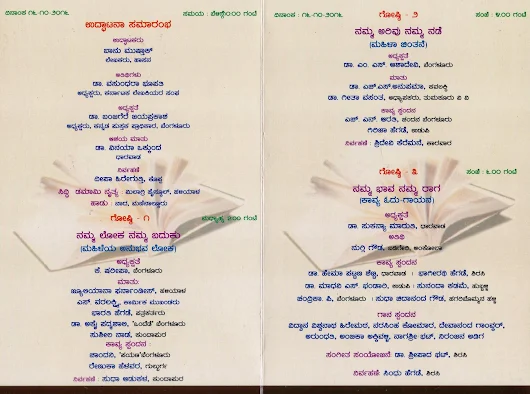 ದಿನಾಂಕ ೧೬-೧೦-೨೦೧೬ ಸಮಯ : ಬೆಳಿಗ್ಗೆ೧೦:೦೦ ಗಂಟೆ
ಉದ್ಘಾಟನಾ ಸಮಾರಂಭ
ಉದ್ಘಾಟಕರು
ಬಾನು ಮುಷ್ತಾಕ್
ಲೇಖಕರು, ಹಾಸನ
ಅತಿಥಿಗಳು
ಡಾ. ವಸುಂಧರಾ ಭೂಪತಿ
ಅಧ್ಯಕ್ಷರು, ಕರ್ನಾಟಕ ಲೇಖಕಿಯರ ಸಂಘ
ಅಧ್ಯಕ್ಷತೆ
ಡಾ. ಬಂಜಗೆರೆ ಜಯಪ್ರಕಾಶ
ಅಧ್ಯಕ್ಷರು, ಕನ್ನಡ ಪುಸ್ತಕ ಪ್ರಾಧಿಕಾರ, ಬೆಂಗಳೂರು
ಆಶಯ ಮಾತು
ಡಾ. ವಿನಯಾ ಒಕ್ಕುಂದ
ಧಾರವಾಡ
ನಿರ್ವಹಣೆ
ದೀಪಾ ಹಿರೇಗುತ್ತಿ, ಕೊಪ್ಪ
ಸಿದ್ಧಿ ಡಮಾಮಿ ನೃತ್ಯ : ಮಿಲಾಗ್ರಿ ಹೈಸ್ಕೂಲ್, ಹಳಿಯಾಳ
ಹಾಡು : ನಾದ, ಮಣಿನಾಲ್ಕೂರು
ಗೋಷ್ಠಿ - ೧ ಮಧ್ಯಾಹ್ನ ೨:೦೦ ಗಂಟೆ
ನಮ್ಮ ಲೋಕ ನಮ್ಮ ಬದುಕು
(ಮಹಿಳೆಯ ಅನುಭವ ಲೋಕ)
ಅಧ್ಯಕ್ಷತೆ
ಕೆ. ಷರೀಫಾ, ಬೆಂಗಳೂರು
ಮಾತು:
ಜ್ಯೂಲಿಯಾನಾ ಫರ್ನಾಂಡೀಸ್, ಹಳಿಯಾಳ
ಎಸ್. ವರಲಕ್ಷ್ಮಿ, ಕಾರ್ಮಿಕ ಮುಖಂಡರು
ಭಾರತಿ ಹೆಗಡೆ, ಪತ್ರಕರ್ತರು
ಸುಶೀಲ ನಾಡ, ಕುಂದಾಪುರ
ಕಾವ್ಯ ಸ್ಪಂದನ :
ಚಾಂದನಿ, 'ಪಯಣ'ಬೆಂಗಳೂರು
ರೇಣುಕಾ ಹೆಳವರ, ಗುಲ್ಬರ್ಗ
ನಿರ್ವಹಣೆ : ಸುಧಾ ಆಡುಕಳ, ಕುಂದಾಪುರ
ದಿನಾಂಕ : ೧೬-೧೦-೨೦೧೬ ಗೋಷ್ಠಿ - ೨ ಸಂಜೆ : ೪:೦೦ ಗಂಟೆ
ನಮ್ಮ ಅರಿವು ನಮ್ಮ ನಡೆ
(ಮಹಿಳಾ ಚಿಂತನೆ)
ಅಧ್ಯಕ್ಷತೆ
ಡಾ. ಎಂ. ಎಸ್. ಆಶಾದೇವಿ, ಬೆಂಗಳೂರು
ಮಾತು
ಡಾ. ಎಚ್.ಎಸ್.ಅನುಪಮಾ, ಕವಲಕ್ಕಿ
ಡಾ. ಗೀತಾ ವಸಂತ, ಅಧ್ಯಾಪಕರು, ತುಮಕೂರು ವಿ ವಿ
ಕಾವ್ಯ ಸ್ಪಂದನ
ಎಚ್. ಎನ್. ಆರತಿ, ಚಂದನ ಬೆಂಗಳೂರು
ಗಿರಿಜಾ ಹೆಗಡೆ, ಉಡುಪಿ
ನಿರ್ವಹಣೆ : ಶ್ರೀದೇವಿ ಕೆರೆಮನೆ, ಕಾರವಾರ
ಗೋಷ್ಠಿ - ೩ ಸಂಜೆ : ೬.೦೦ ಗಂಟೆ
ನಮ್ಮ ಭಾವ ನಮ್ಮ ರಾಗ
(ಕಾವ್ಯ ಓದು-ಗಾಯನ)
ಅಧ್ಯಕ್ಷತೆ
ಡಾ. ಸುಕನ್ಯಾ ಮಾರುತಿ, ಧಾರವಾಡ
ಅತಿಥಿ
ಸುಗ್ಗಿ ಗೌಡ, ಬಡಗೇರಿ, ಅಂಕೋಲಾ
ಕಾವ್ಯ ಸ್ಪಂದನ
ಡಾ. ಹೇಮಾ ಪಟ್ಟಣ ಶೆಟ್ಟಿ, ಧಾರವಾಡ : ಭಾಗೀರಥಿ ಹೆಗಡೆ, ಶಿರಸಿ
ಡಾ. ಮಾಧವಿ ಎಸ್. ಭಂಡಾರಿ, ಉಡುಪಿ : ಸುನಂದಾ ಕಡಮೆ, ಹುಬ್ಬಳ್ಳಿ
ಚಂದ್ರಿಕಾ. ಪಿ, ಬೆಂಗಳೂರು : ಸುಧಾ ಚಿದಾನಂದ ಗೌಡ, ಹಗರಿಬೊಮ್ಮನ ಹಳ್ಳಿ
ಗಾನ ಸ್ಪಂದನ
ವಿದ್ವಾನ್ ವಿಶ್ವನಾಥ ಹಿರೇಮಠ, ನರಸಿಂಹ ಕೋಮಾರ, ದೇವಾನಂದ ಗಾಂವ್ಕರ್,
ಅರುಂಧತಿ, ಅಂಬಿಕಾ ಅಕ್ಕಿವಳ್ಳಿ, ವಾಗಶ್ರೀ ಭಟ್, ನಿರಂಜನ ಅಡಿಗ
ಸಂಗೀತ ಸಂಯೋಜನೆ: ಡಾ. ಶ್ರೀಪಾದ ಭಟ್, ಶಿರಸಿ
ನಿರ್ವಹಣೆ: ಸಿಂಧು ಹೆಗಡೆ, ಶಿರಸಿ